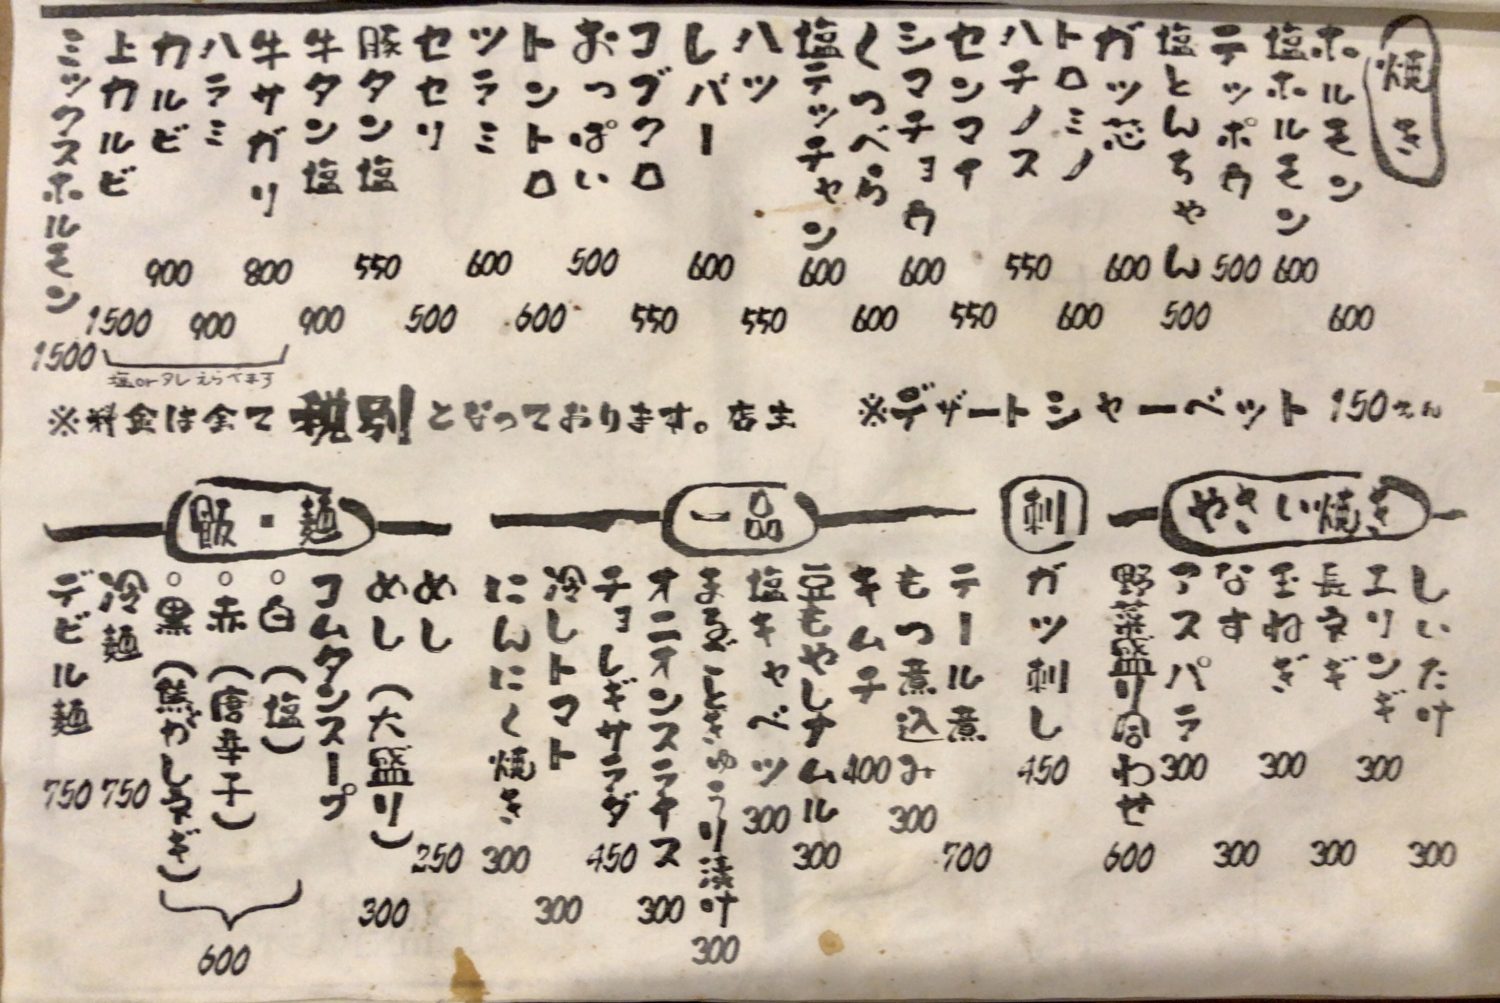 焼き
ホルモン 600
塩ホルモン 600
テッポウ 500
塩とんちゃん 500
ガツ芯 600
トロミノ 600
ハチノス 550
センマイ 550
シマチョウ 600
くつべら 600
塩テッチャン 600
ハツ 550
レバー 600
コブクロ 550
おっぱい 500
トントロ 600
ツラミ 600
セセリ 500
豚タン塩 550
牛タン塩 900
牛サガリ 800
ハラミ 900
カルビ 900
上カルビ 1500
ミックスホルモン 1500
塩orタレえらべます
※料金は全て税別となっております。店主
※デザートシャーベット 150えん
やさい焼き
しいたけ 300
エリンギ 300
長ネギ 300
玉ねぎ 300
なす 300
アスパラ 300
野菜盛り合わせ 600
刺
ガツ刺し 450
一品
テール煮 700
もつ煮込み 300
キムチ 400
豆もやしナムル 300
塩キャベツ 300
まるごときゅうり漬け 300
オニオンスライス 300
チョレギサラダ 450
冷しトマト 300
にんにく焼き 300
飯・麺
めし 250
めし(大盛り) 300
コムタンスープ
○白(塩)
○赤(唐辛子)
○黒(焦がしネギ)
600
冷麺 750
デビル麺 750